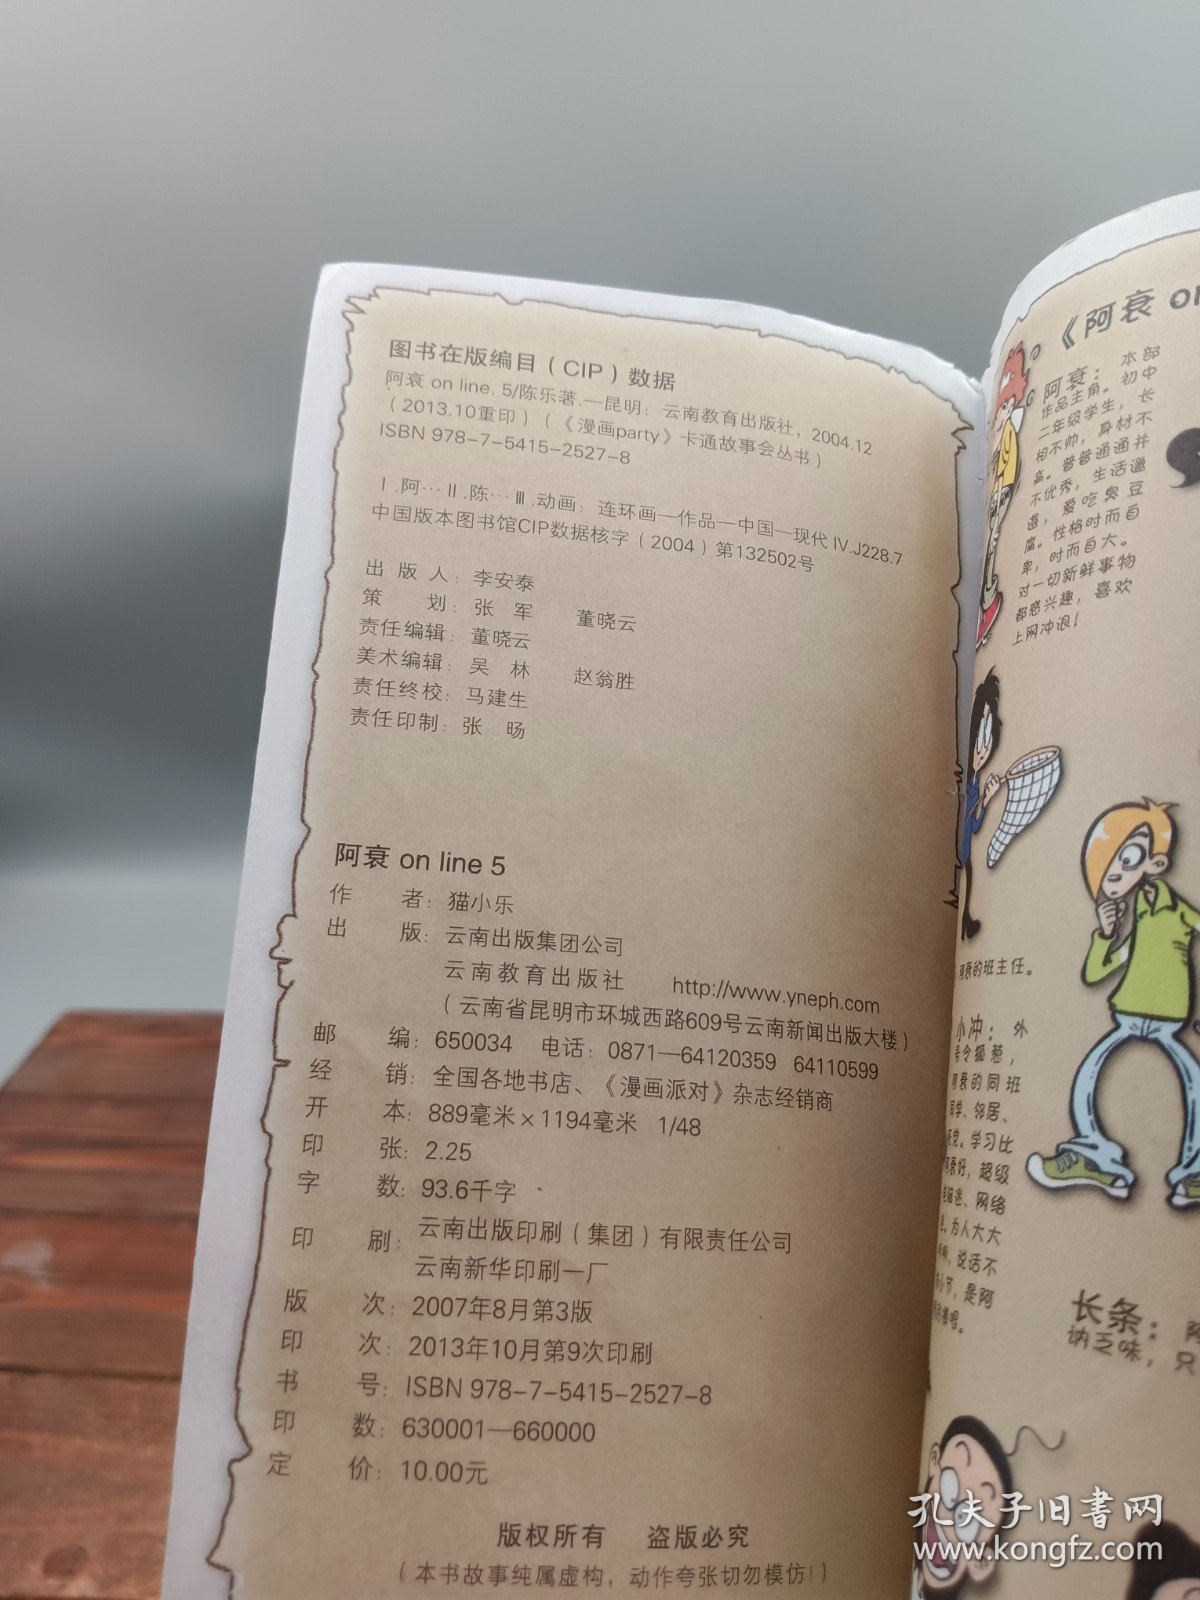 图书在版编目（CIP）数据
阿衰 on line. 5/陈乐著.—昆明：云南教育出版社，2004.12
（2013.10重印）（《漫画party》卡通故事会丛书）
ISBN 978-7-5415-2527-8
Ⅰ.阿… Ⅱ.陈… Ⅲ.动画：连环画—作品—中国—现代 Ⅳ.J228.7
中国版本图书馆CIP数据核字（2004）第132502号
出 版 人：李安泰
策　　划：张　军　　董晓云
责任编辑：董晓云
美术编辑：吴　林　　赵翁胜
责任终校：马建生
责任印制：张　旸
阿衰 on line 5
作　　者：猫小乐
出　　版：云南出版集团公司
云南教育出版社　　http://www.yneph.com
（云南省昆明市环城西路609号云南新闻出版大楼）
邮　　编：650034　电话：0871—64120359　64110599
经　　销：全国各地书店、《漫画派对》杂志经销商
开　　本：889毫米×1194毫米　1/48
印　　张：2.25
字　　数：93.6千字
印　　刷：云南出版印刷（集团）有限责任公司
云南新华印刷一厂
版　　次：2007年8月第3版
印　　次：2013年10月第9次印刷
书　　号：ISBN 978-7-5415-2527-8
印　　数：630001—660000
定　　价：10.00元
版权所有　盗版必究
（本书故事纯属虚构，动作夸张切勿模仿！）
《阿衰 on
阿衰：本部
作品主角。初中
二年级学生，长
相不帅，身材不
高。普普通通并
不优秀，生活邋
遢，爱吃臭豆
腐。性格时而自
卑，时而自大。
对一切新鲜事物
都感兴趣，喜欢
上网冲浪！
阿衰的班主任。
小冲：外
号令狐葱，
阿衰的同班
同学、邻居、
死党。学习比
阿衰好，超级
电脑迷、网络
，为人大大
，说话不
小节，是阿
长条：
讷乏味，只
孔夫子旧书网
www.kongfz.com